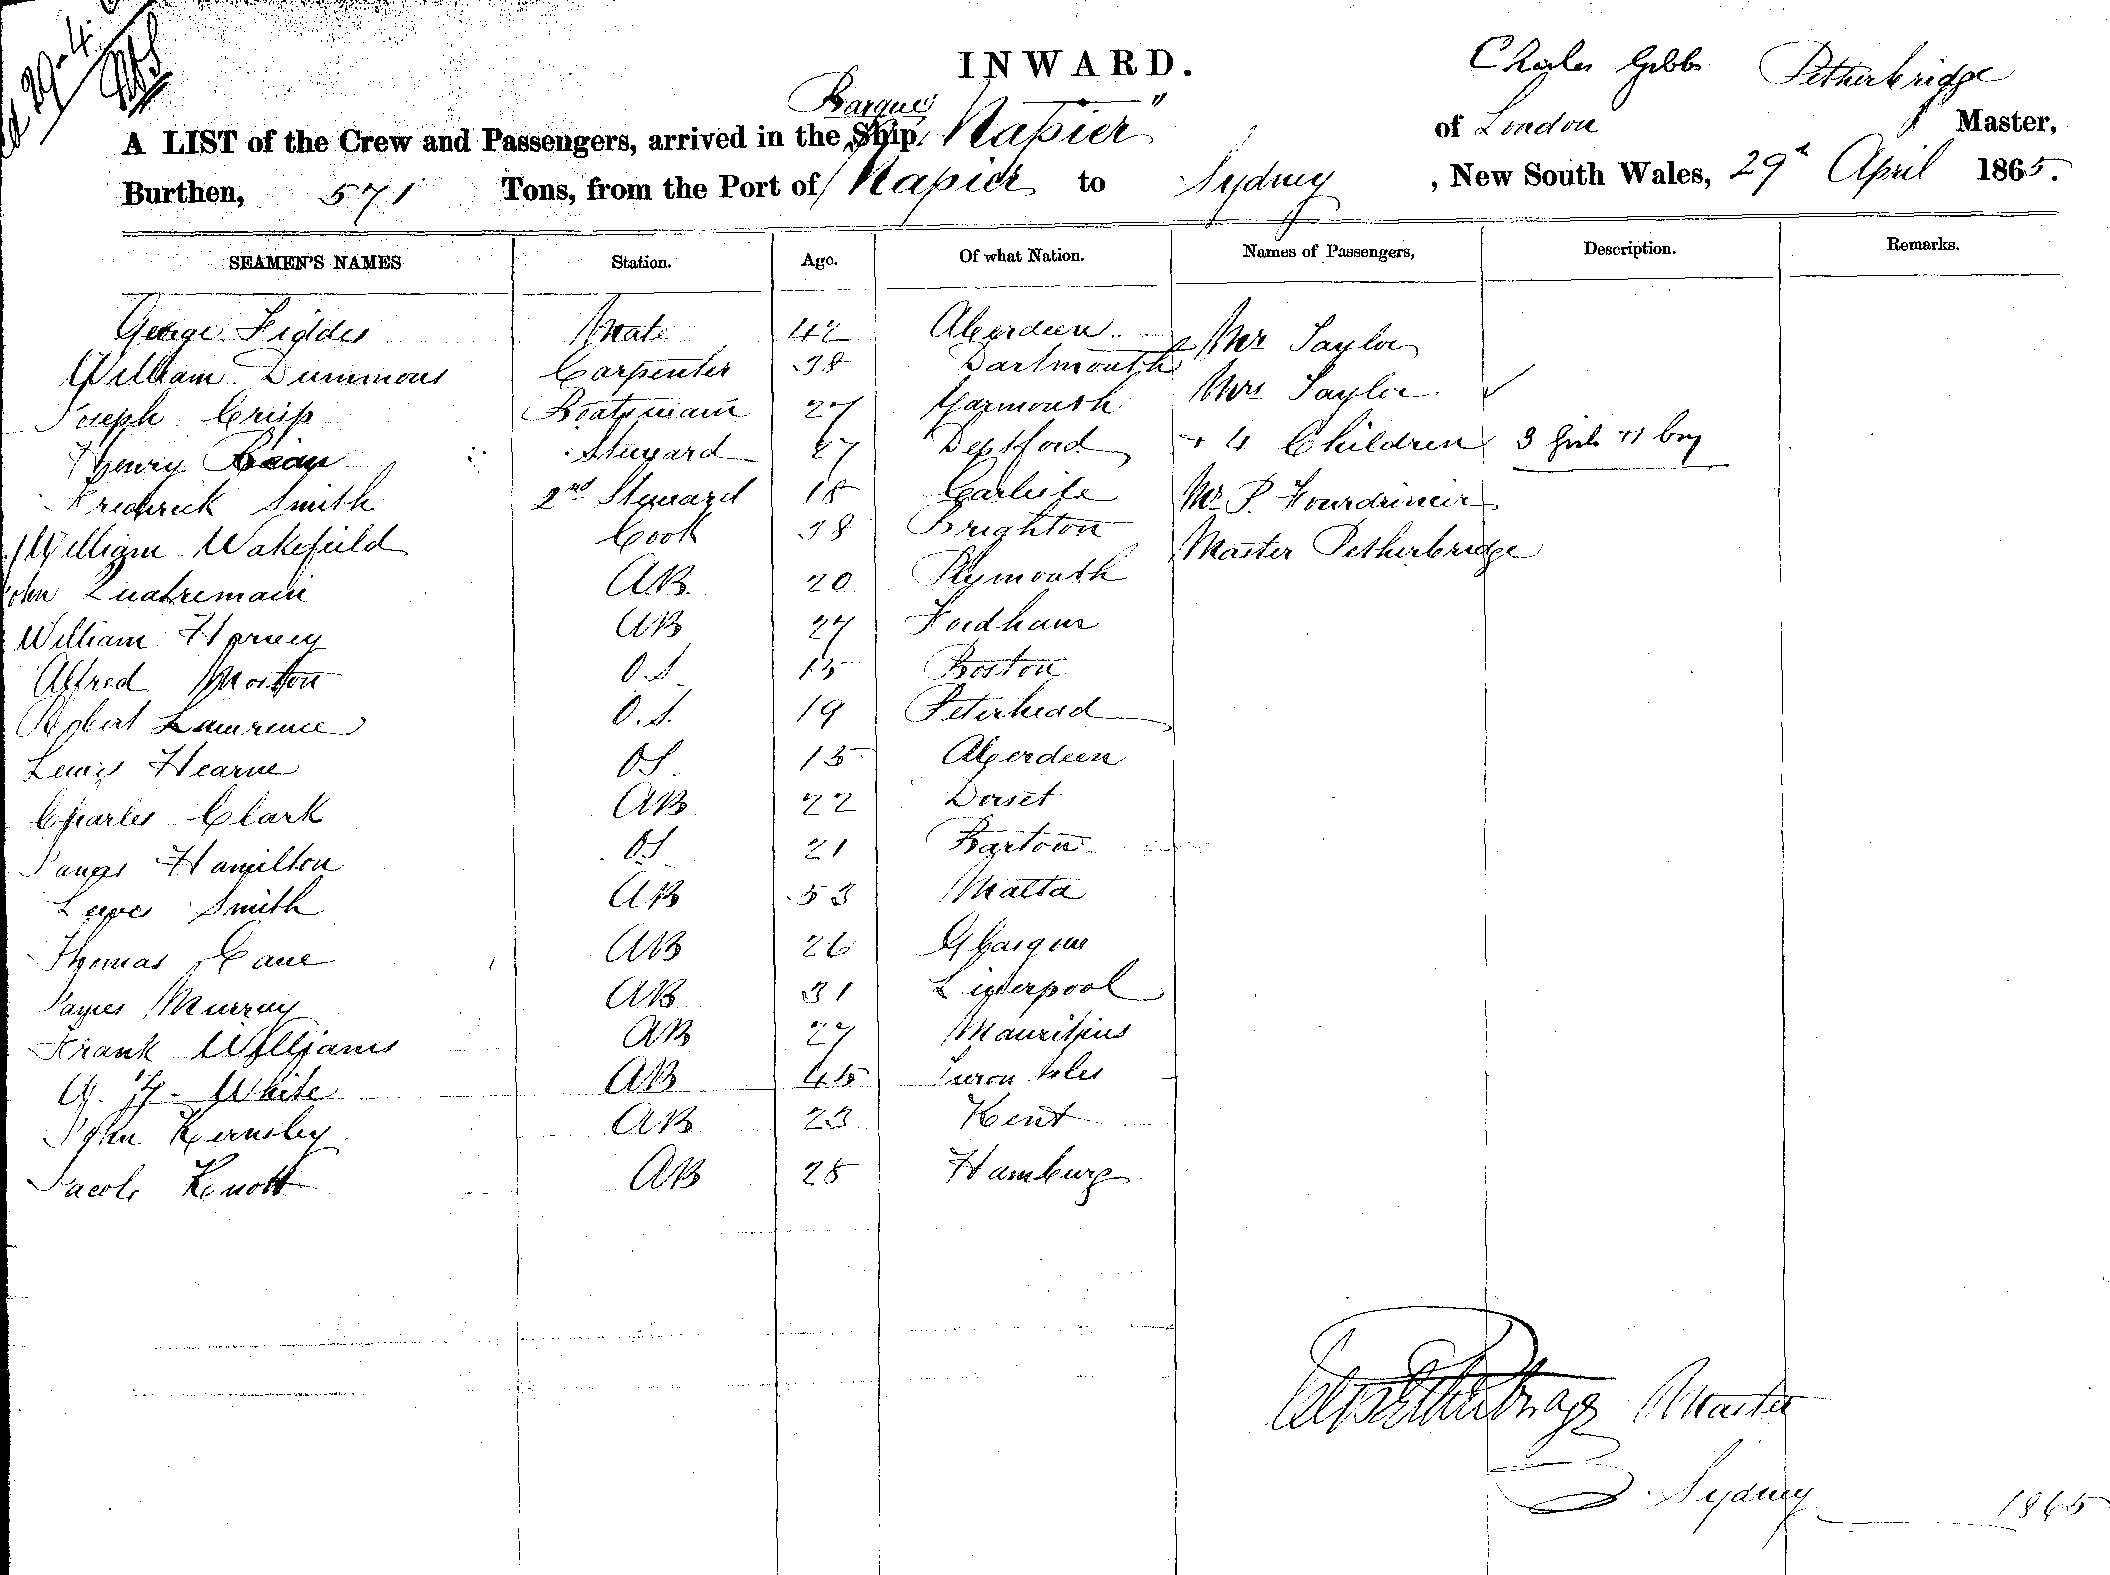 29-4
INWARD.
Charles Gibbs Petherbridge
Barque
A LIST of the Crew and Passengers, arrived in the Ship "Napier" of London Master,
Burthen, 571 Tons, from the Port of Napier to Sydney, New South Wales, 29th April 1865.
SEAMEN'S NAMES Station. Age. Of what Nation. Names of Passengers, Description. Remarks.
George Fiddes Mate 42 Aberdeen Mr Taylor
William Dummons Carpenter 38 Dartmouth Mrs Taylor ✓
Joseph Crisp Boatswain 27 Yarmouth
Henry Steward 27 Deptford + 4 Children 3 Girls + 1 boy
Frederick Smith 2nd Steward 18 Carlisle Mr P. Fourdrinier
William Wakefield Cook 38 Brighton Master Petherbridge
John Quatremain AB. 20 Plymouth
William Harvey AB 27 Fordham
Alfred Morton O.S 15 Boston
Robert Lawrence O.S. 19 Peterhead
Lewis Hearne OS 15 Aberdeen
Charles Clark AB 22 Dorset
James Hamilton OS 21 Barton
Smith AB 53 Malta
Thomas Cane AB 26 Glasgow
James Murray AB 31 Liverpool
Frank Williams AB 27 Mauritius
G. H. White AB 45 Isles
John Kernsley AB 23 Kent
Jacob Knott AB 28 Hamburg
Petherbridge Master
Sydney 1865